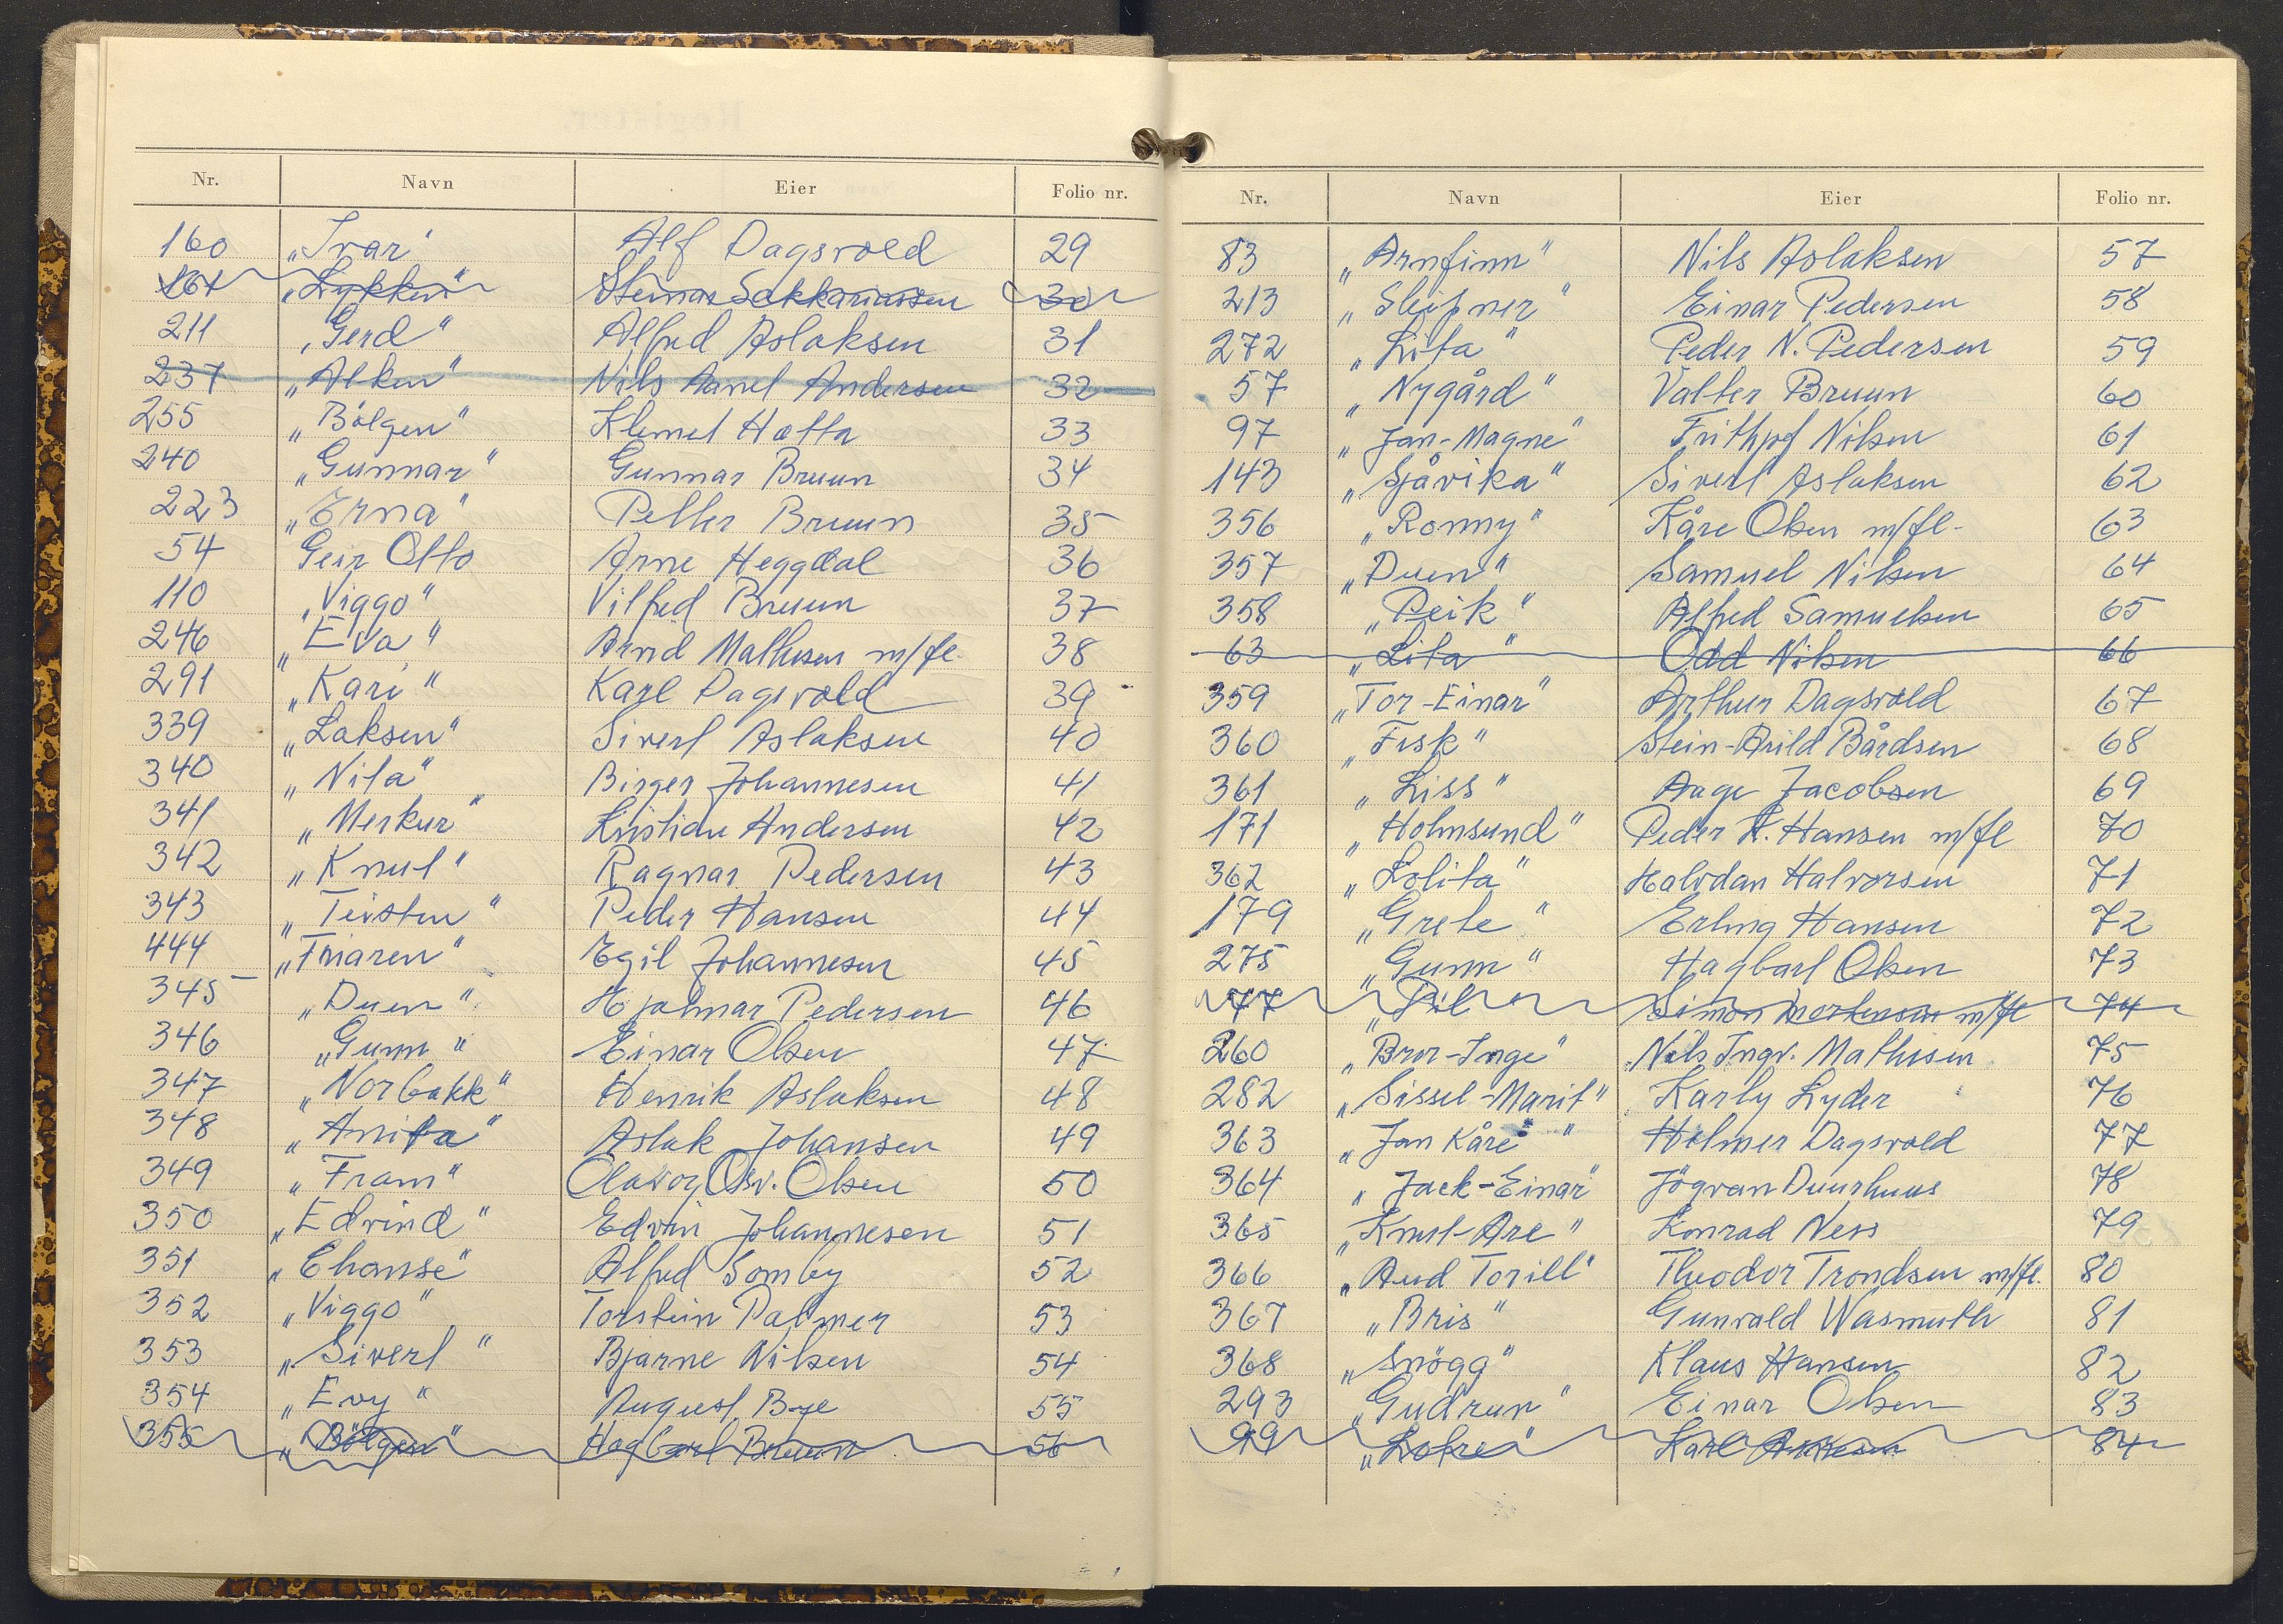 Nr. Navn Eier Folio nr.
160 „Ivar" Alf Dagsvold 29
161 „Lykken" Steinar Sakkariassen 30
211 „Gerd" Alfred Aslaksen 31
237 „Alken" Nils Aanel Andersen 32
255 „Bölgen" Klemet Hætta 33
240 „Gunnar" Gunnar Bruun 34
223 „Erna" Petter Bruun 35
54 Geir Otto Arne Heggdal 36
110 „Viggo" Vilfred Bruun 37
246 „Eva" Arnd Mathisen m/fl. 38
291 „Kari" Karl Dagsvold 39
339 „Laksen" Sivert Aslaksen 40
340 „Nita" Birger Johannesen 41
341 „Merkur" Kristian Andersen 42
342 „Knut" Ragnar Pedersen 43
343 „Teisten" Peder Hansen 44
444 „Triaren" Egil Johannesen 45
345 „Duen" Hjalmar Pedersen 46
346 „Gunn" Einar Olsen 47
347 „Norbakk" Henrik Aslaksen 48
348 „Anita" Aslak Johansen 49
349 „Fram" Olav og Osv. Olsen 50
350 „Edvind" Edvin Johannesen 51
351 „Chanse" Alfred Somby 52
352 „Viggo" Torstein Palmer 53
353 „Sivert" Bjarne Nilsen 54
354 „Evy" August Bye 55
355 „Bölgen" Hagbart Bruun 56
Nr. Navn Eier Folio nr.
83 „Arnfinn" Nils Aslaksen 57
213 „Sleipner" Einar Pedersen 58
272 „Lita" Peder N. Pedersen 59
57 „Nygård" Valter Bruun 60
97 „Jan-Magne" Frithjof Nilsen 61
143 „Sjåvika" Sivert Aslaksen 62
356 „Ronny" Kåre Olsen m/fl. 63
357 „Duen" Samuel Nilsen 64
358 „Peik" Alfred Samuelsen 65
63 „Lita" Odd Nilsen 66
359 „Tor-Einar" Arthur Dagsvold 67
360 „Fisk" Stein-Arild Bårdsen 68
361 „Liss" Aage Jacobsen 69
171 „Holmsund" Peder K. Hansen m/fl 70
362 „Lolita" Halvdan Halvorsen 71
179 „Grete" Erling Hansen 72
275 „Gunn" Hagbart Olsen 73
77 „Pil" Simon Mortensen m/fl 74
260 „Bror-Inge" Nils Ingv. Mathisen 75
282 „Sissel-Marit" Karly Lyder 76
363 „Jan Kåre" Holmer Dagsvold 77
364 „Jack-Einar" Jögvan Duurhuus 78
365 „Knut-Are" Konrad Ness 79
366 „Aud Torill" Theodor Trondsen m/fl. 80
367 „Bris" Gunvald Wasmuth 81
368 „Snögg" Klaus Hansen 82
293 „Gudrun" Einar Olsen 83
99 Karl 84